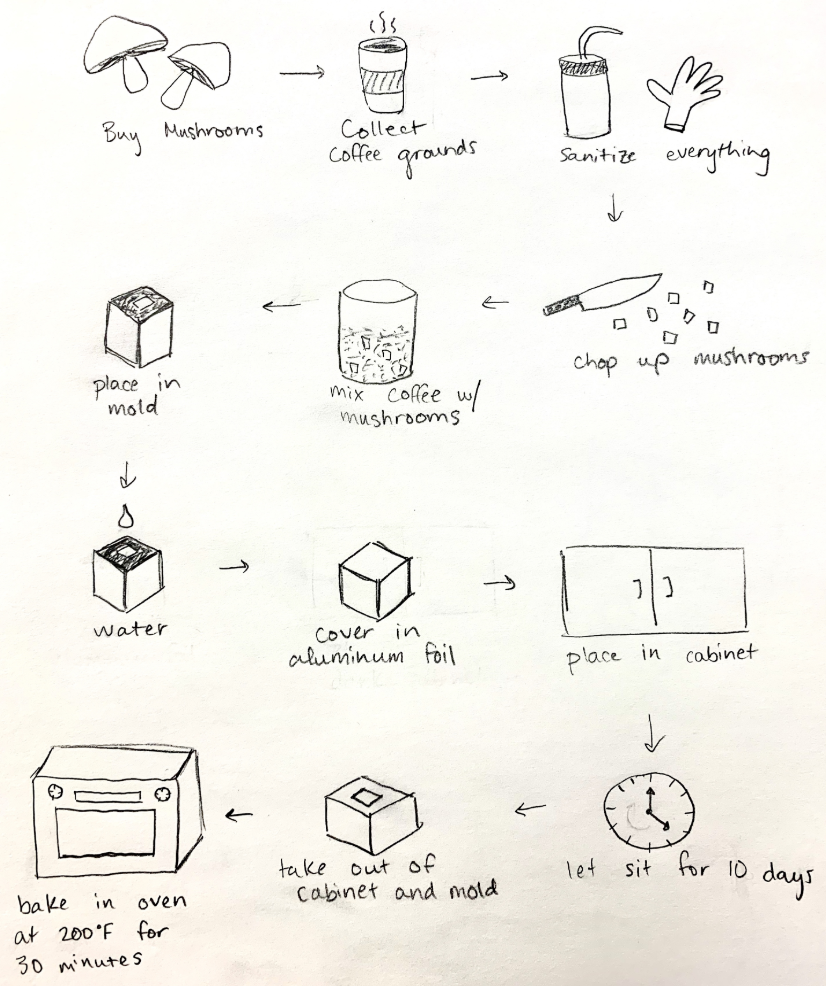 Buy Mushrooms
Collect
Coffee grounds
Sanitize everything
chop up mushrooms
mix coffee w/
mushrooms
place in
mold
water
cover in
aluminum foil
place in cabinet
let sit for 10 days
take out of
cabinet and mold
bake in oven
at 200°F for
30 minutes